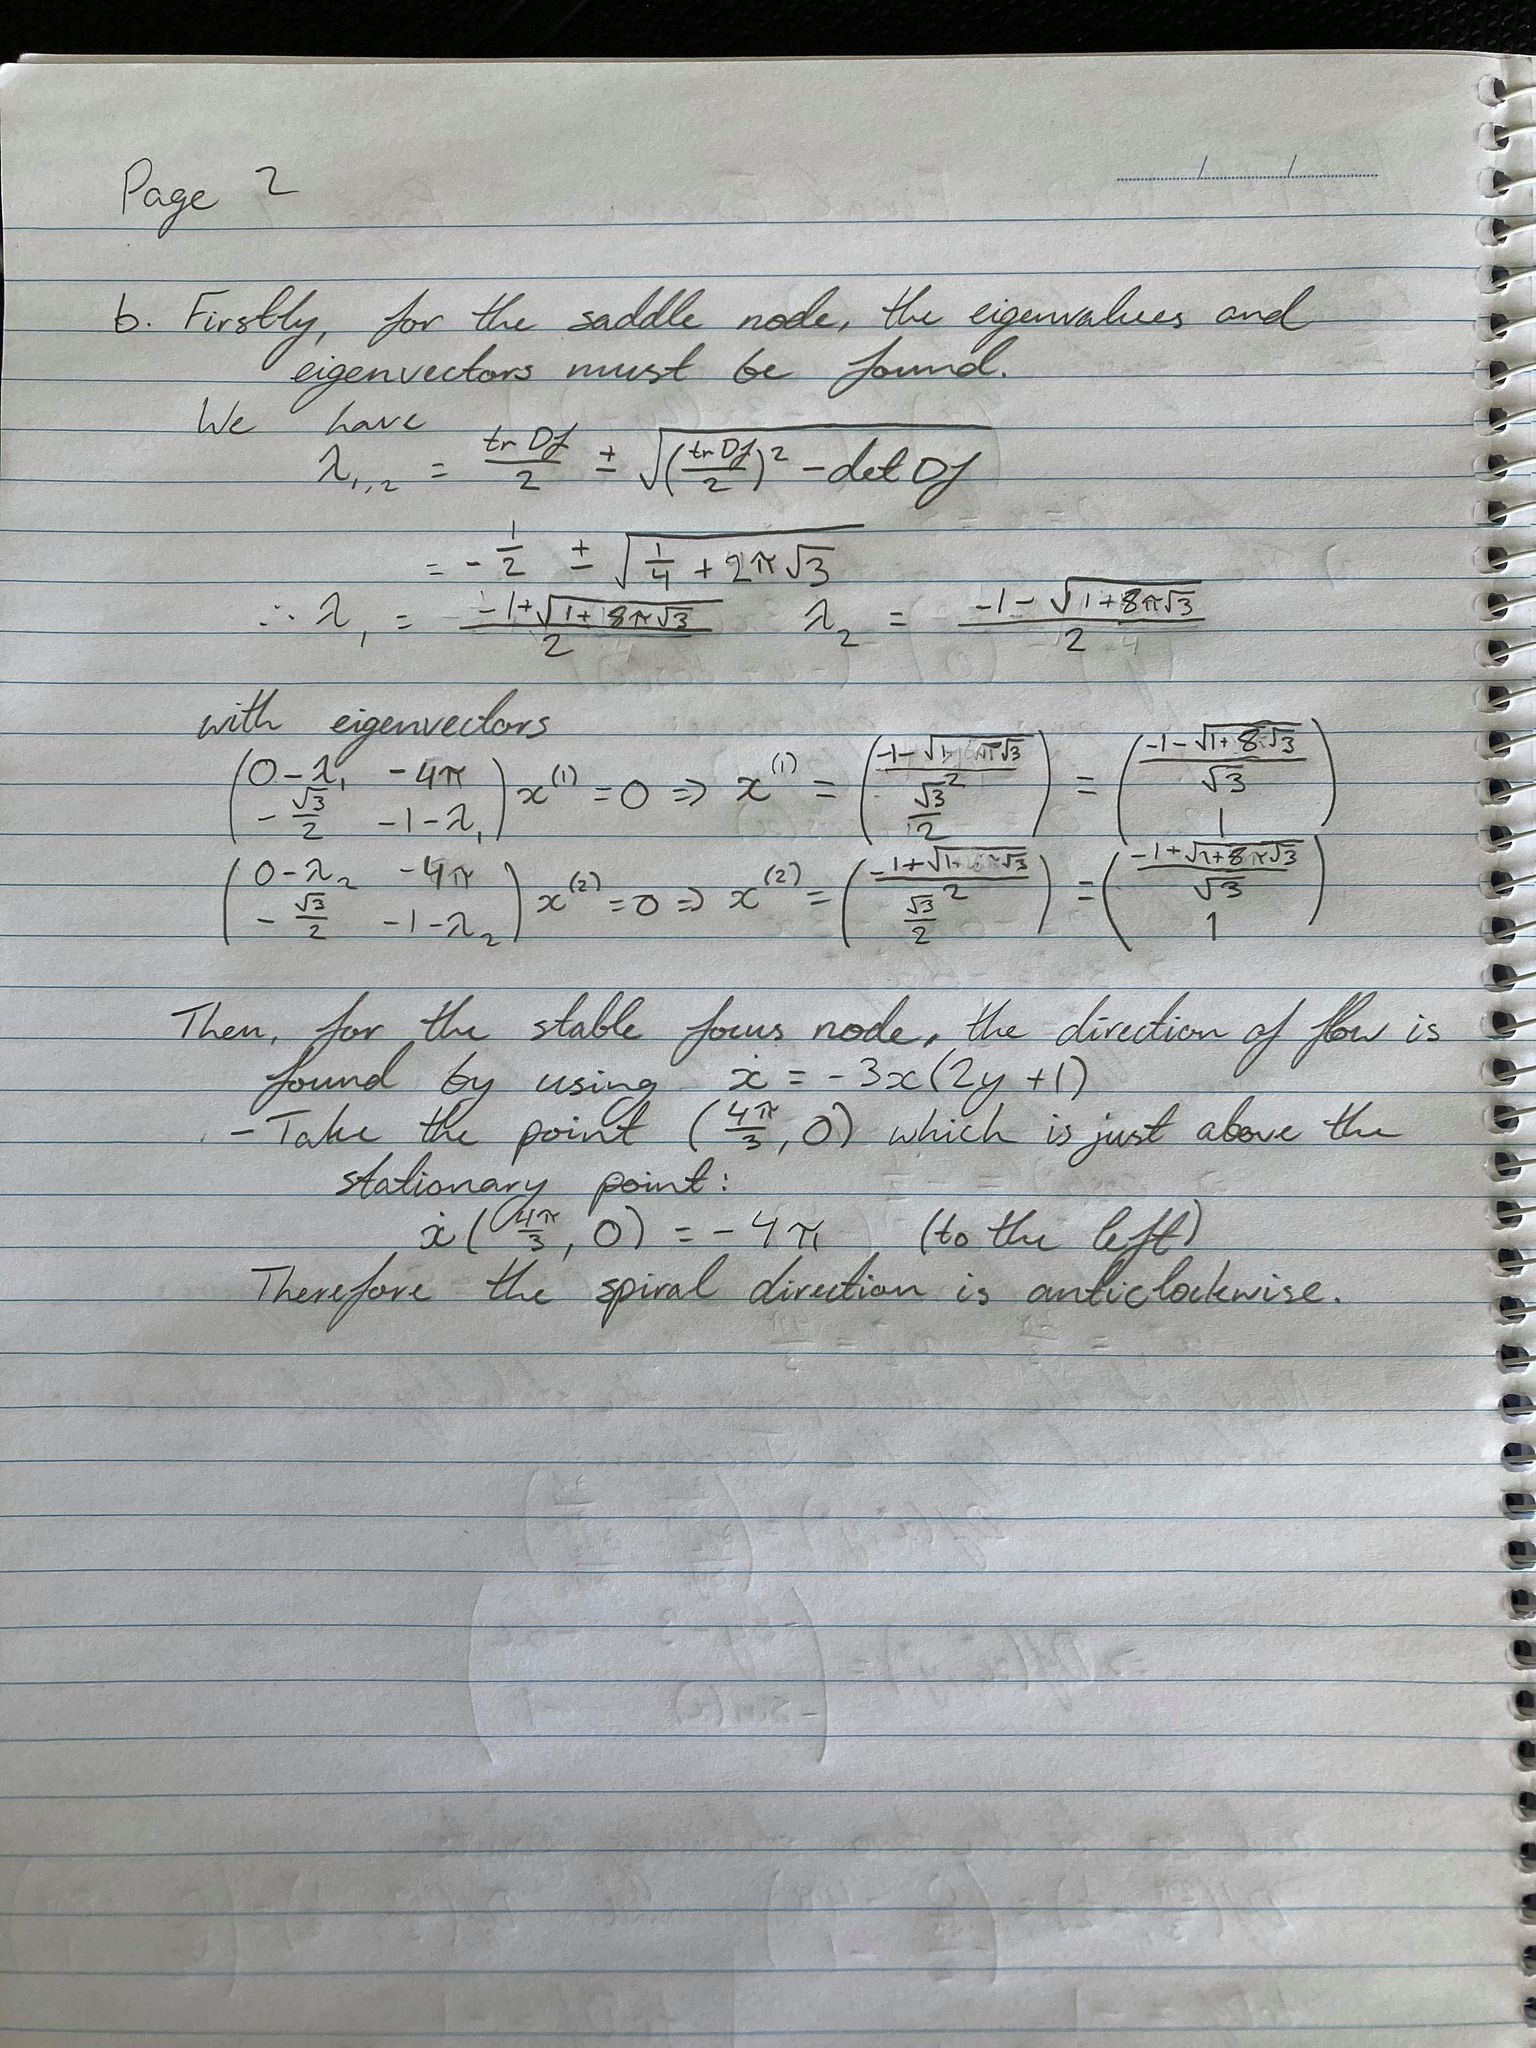 Page 2
b. Firstly, for the saddle node, the eigenvalues and
eigenvectors must be found.
We have
λ₁,₂ = tr Df/2 ± √((tr Df/2)² - det Df)
= -1/2 ± √(1/4 + 2π√3)
∴ λ₁ = (-1+√(1+8π√3))/2 λ₂ = (-1-√(1+8π√3))/2
with eigenvectors
(0-λ₁ -4π; -√3/2 -1-λ₁) x⁽¹⁾ = 0 ⇒ x⁽¹⁾ = ((-1-√(1+8π√3))/2; √3/2) = ((-1-√(1+8√3))/√3; 1)
(0-λ₂ -4π; -√3/2 -1-λ₂) x⁽²⁾ = 0 ⇒ x⁽²⁾ = ((-1+√(1+8π√3))/2; √3/2) = ((-1+√(1+8π√3))/√3; 1)
Then, for the stable focus node, the direction of flow is
found by using ẋ = -3x(2y+1)
- Take the point (4π/3, 0) which is just above the
stationary point:
ẋ(4π/3, 0) = -4π (to the left)
Therefore the spiral direction is anticlockwise.